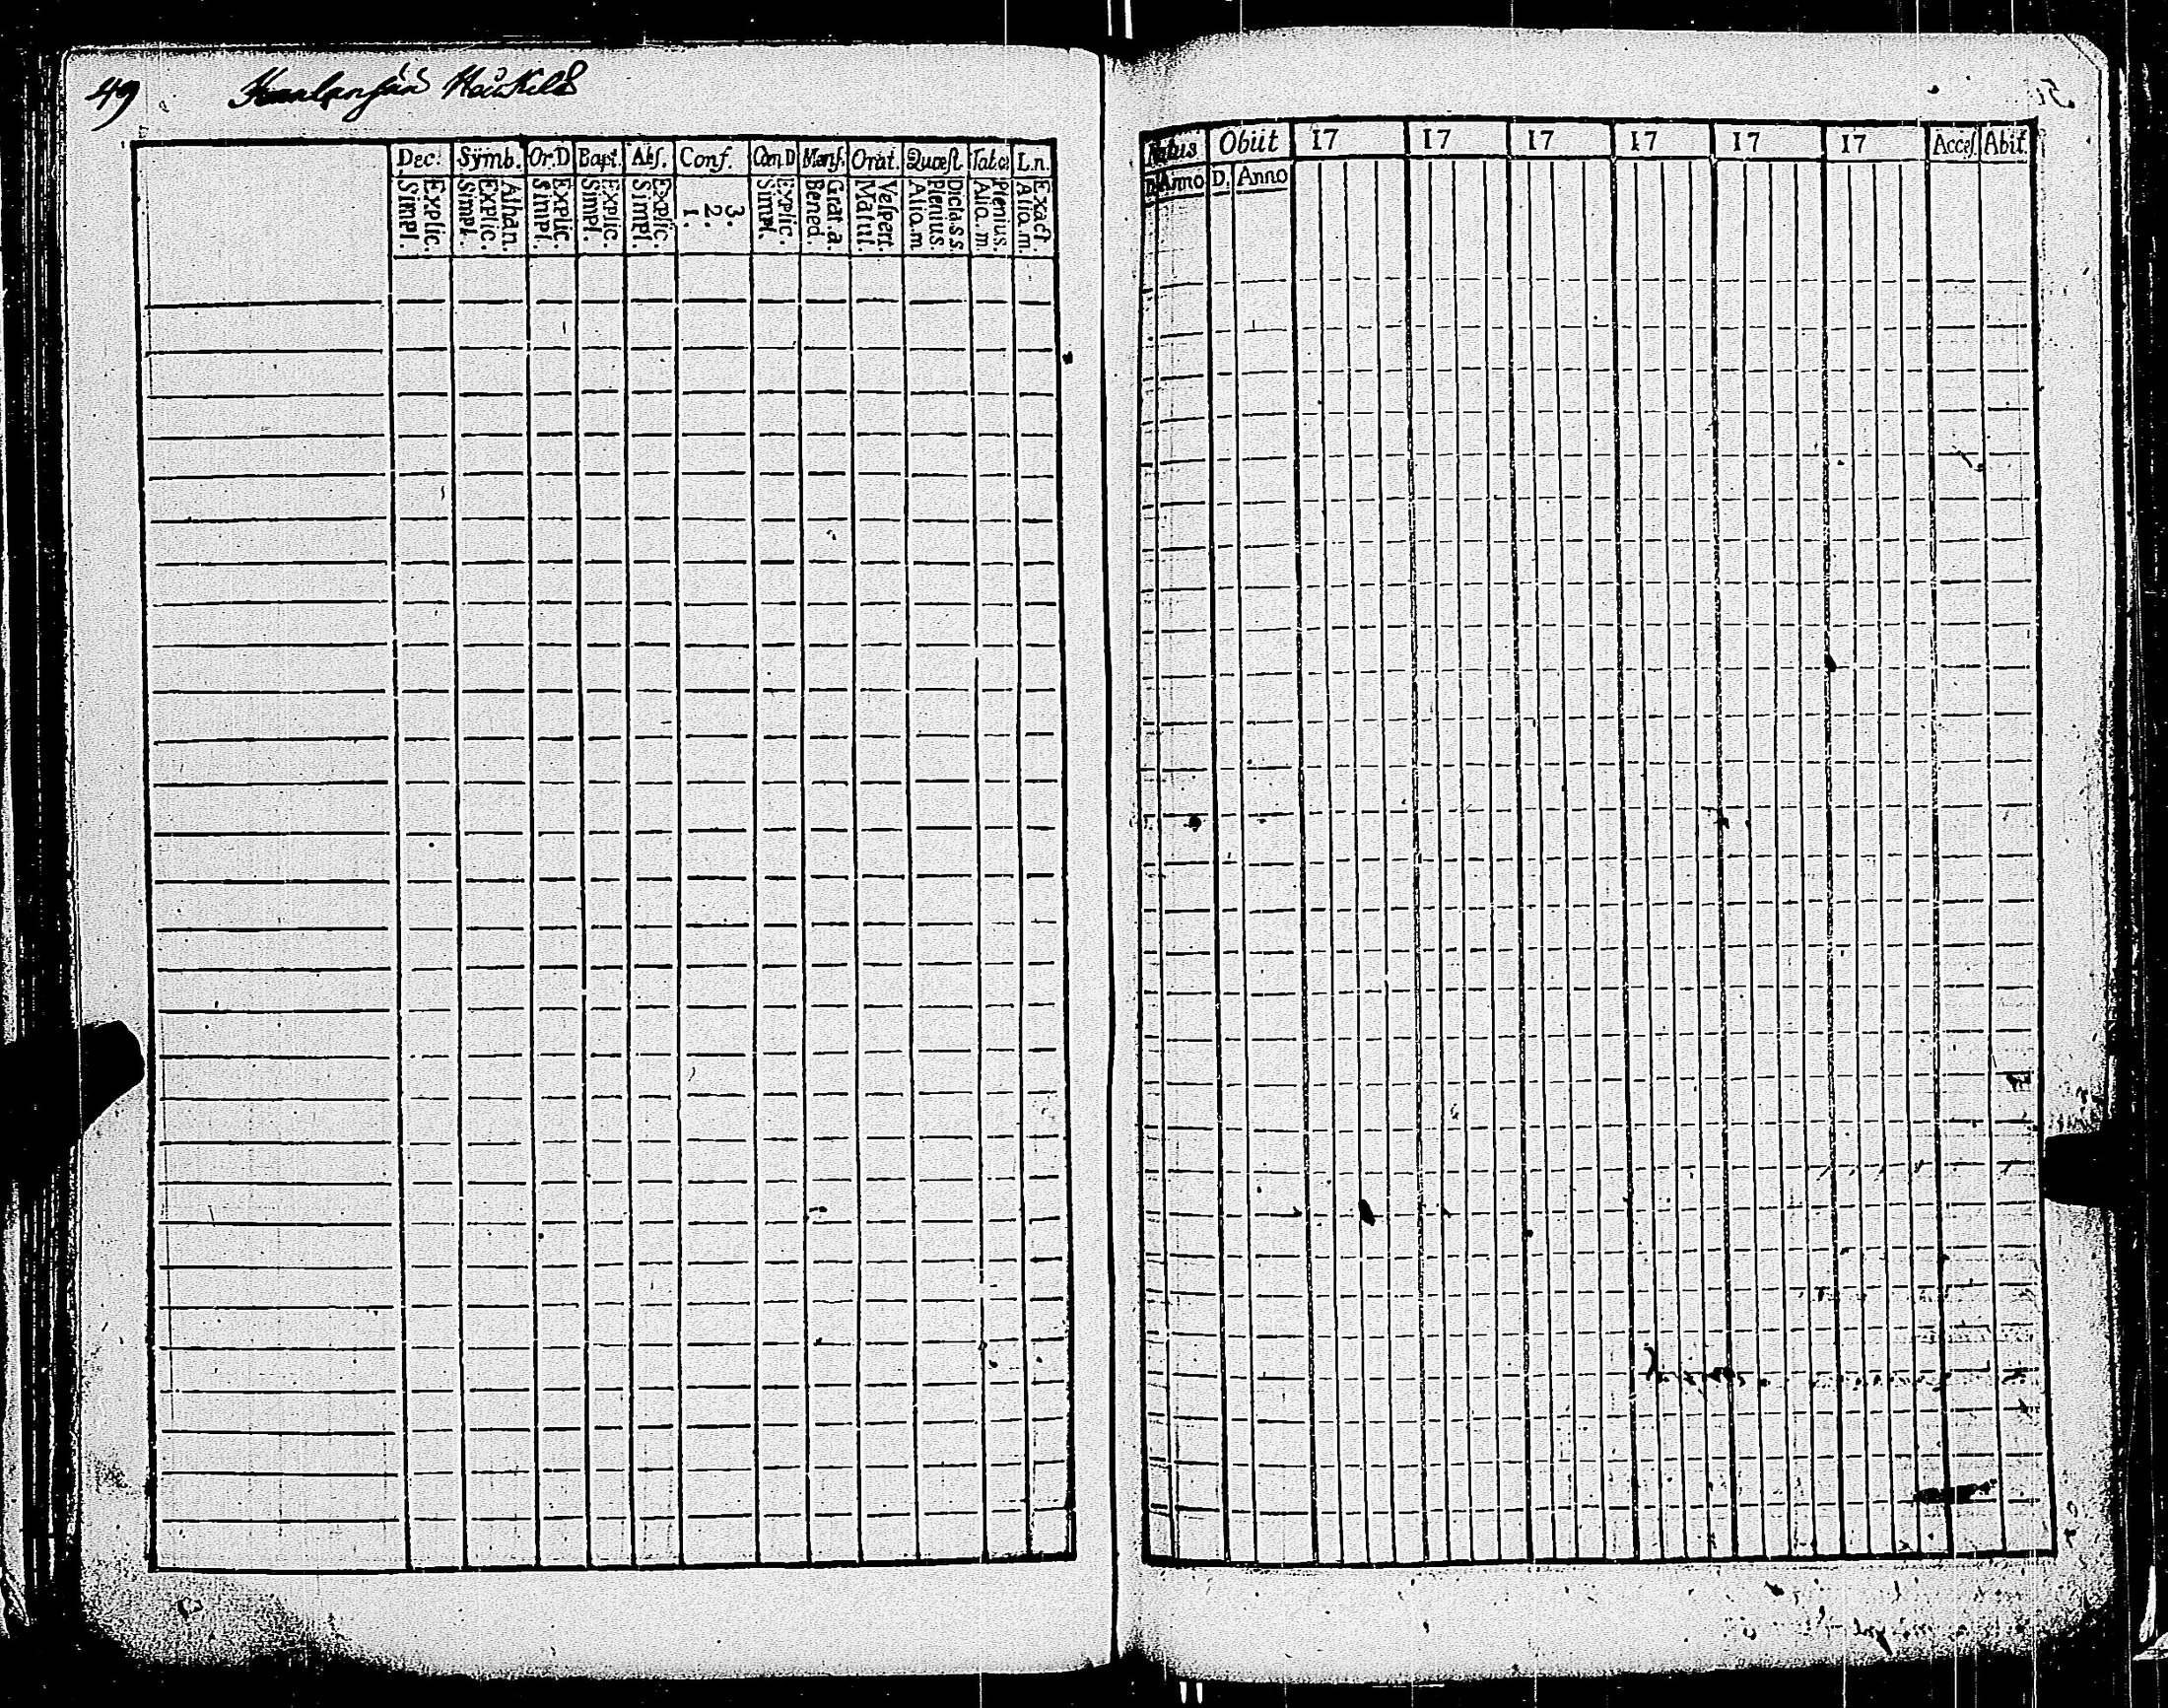 49
Dec: Symb. Or.D Bapt. Abſ. Conf. Com D Menſ. Orat. Quæſt. Tab.œ L.n.
Simpl. Explic. Simpl. Explic. Athan. Simpl. Explic. Simpl. Explic. Simpl. Explic. 1. 2. 3. Simpl. Explic. Bened. Grat.a. Matut. Veſpert. Alio.m Plenius. Dicta.s.s. Alio.m. Plenius. Alio.m. Exact.
Natus Obiit 17 17 17 17 17 17 Acceſ. Abit.
D. Anno D. Anno